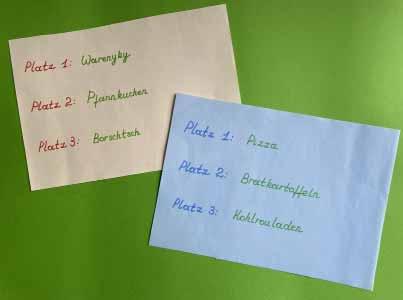 Platz 1: Warenyky
Platz 2: Pfannkuchen
Platz 3: Borschtsch
Platz 1: Pizza
Platz 2: Bratkartoffeln
Platz 3: Kohlrouladen